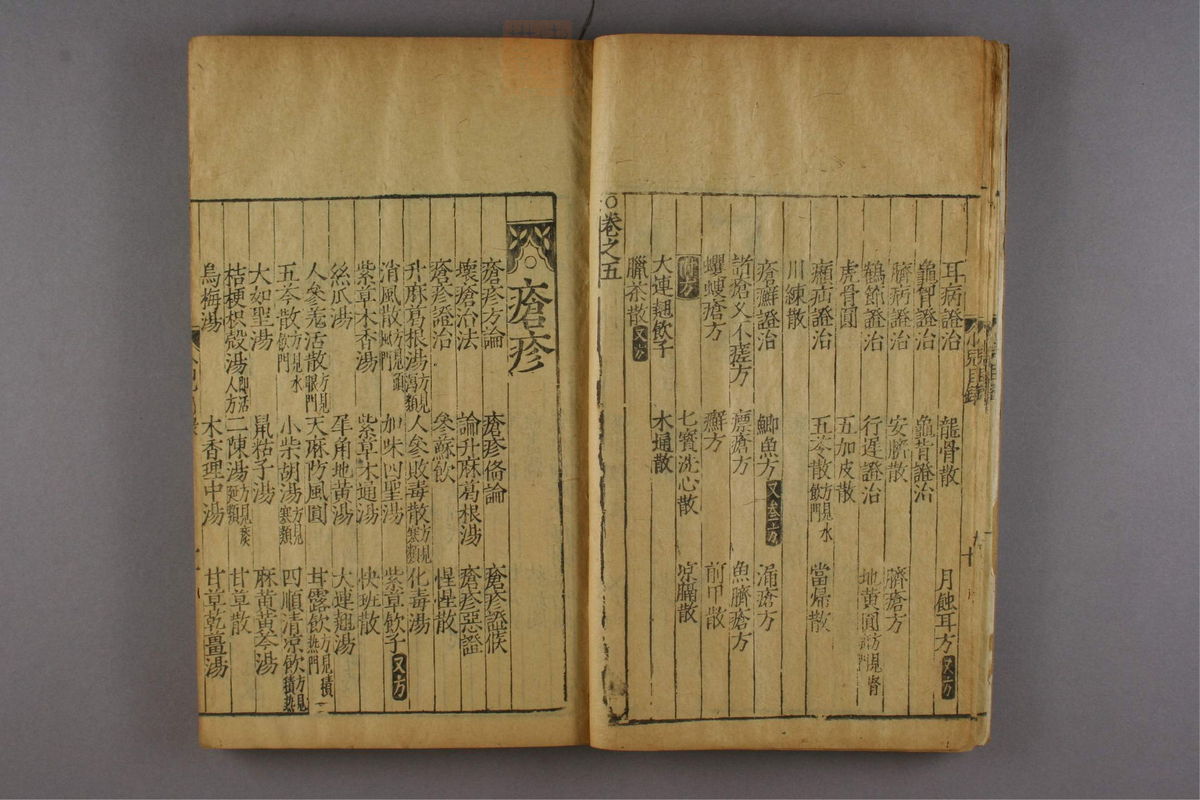 耳病證治 龍骨散 月蝕耳方 又方
龜胷證治 龜背證治
臍病證治 安臍散 臍瘡方
鶴節證治 行遲證治 地黃圓 方見腎
虎骨圓 五加皮散
㿗疝證治 五苓散 方見水飲門 當歸散
川練散
瘡癬證治 鯽魚方 又叁方 涌瘡方
諸瘡久不瘥方 瘭瘡方 魚臍瘡方
蠼螋瘡方 癬方 前甲散
附方 七寶洗心散 凉膈散
大連翹飲子 木通散
臘茶散 又方
○卷之五
○瘡疹
瘡疹方論 瘡疹備論 瘡疹證候
壞瘡治法 論升麻葛根湯 瘡疹惡證
瘡疹證治 參蘇飲 惺惺散
升麻葛根湯 方見瀉類 人參敗毒散 方見寒類 化毒湯
消風散 方見頭風門 加味四聖湯 紫草飲子 又方
紫草木香湯 紫草木通湯 快班散
絲瓜湯 犀角地黃湯 大連翹湯
人參羗活散 方見眼門 天麻防風圓 甘露飲 方見積熱門
五苓散 方見水飲門 小柴胡湯 方見寒類 四順清凉飲 方見積熱
大如聖湯 鼠粘子湯 麻黃黃芩湯
桔梗枳殼湯 即活人方 二陳湯 方見痰類 甘草散
烏梅湯 木香理中湯 甘草乾薑湯